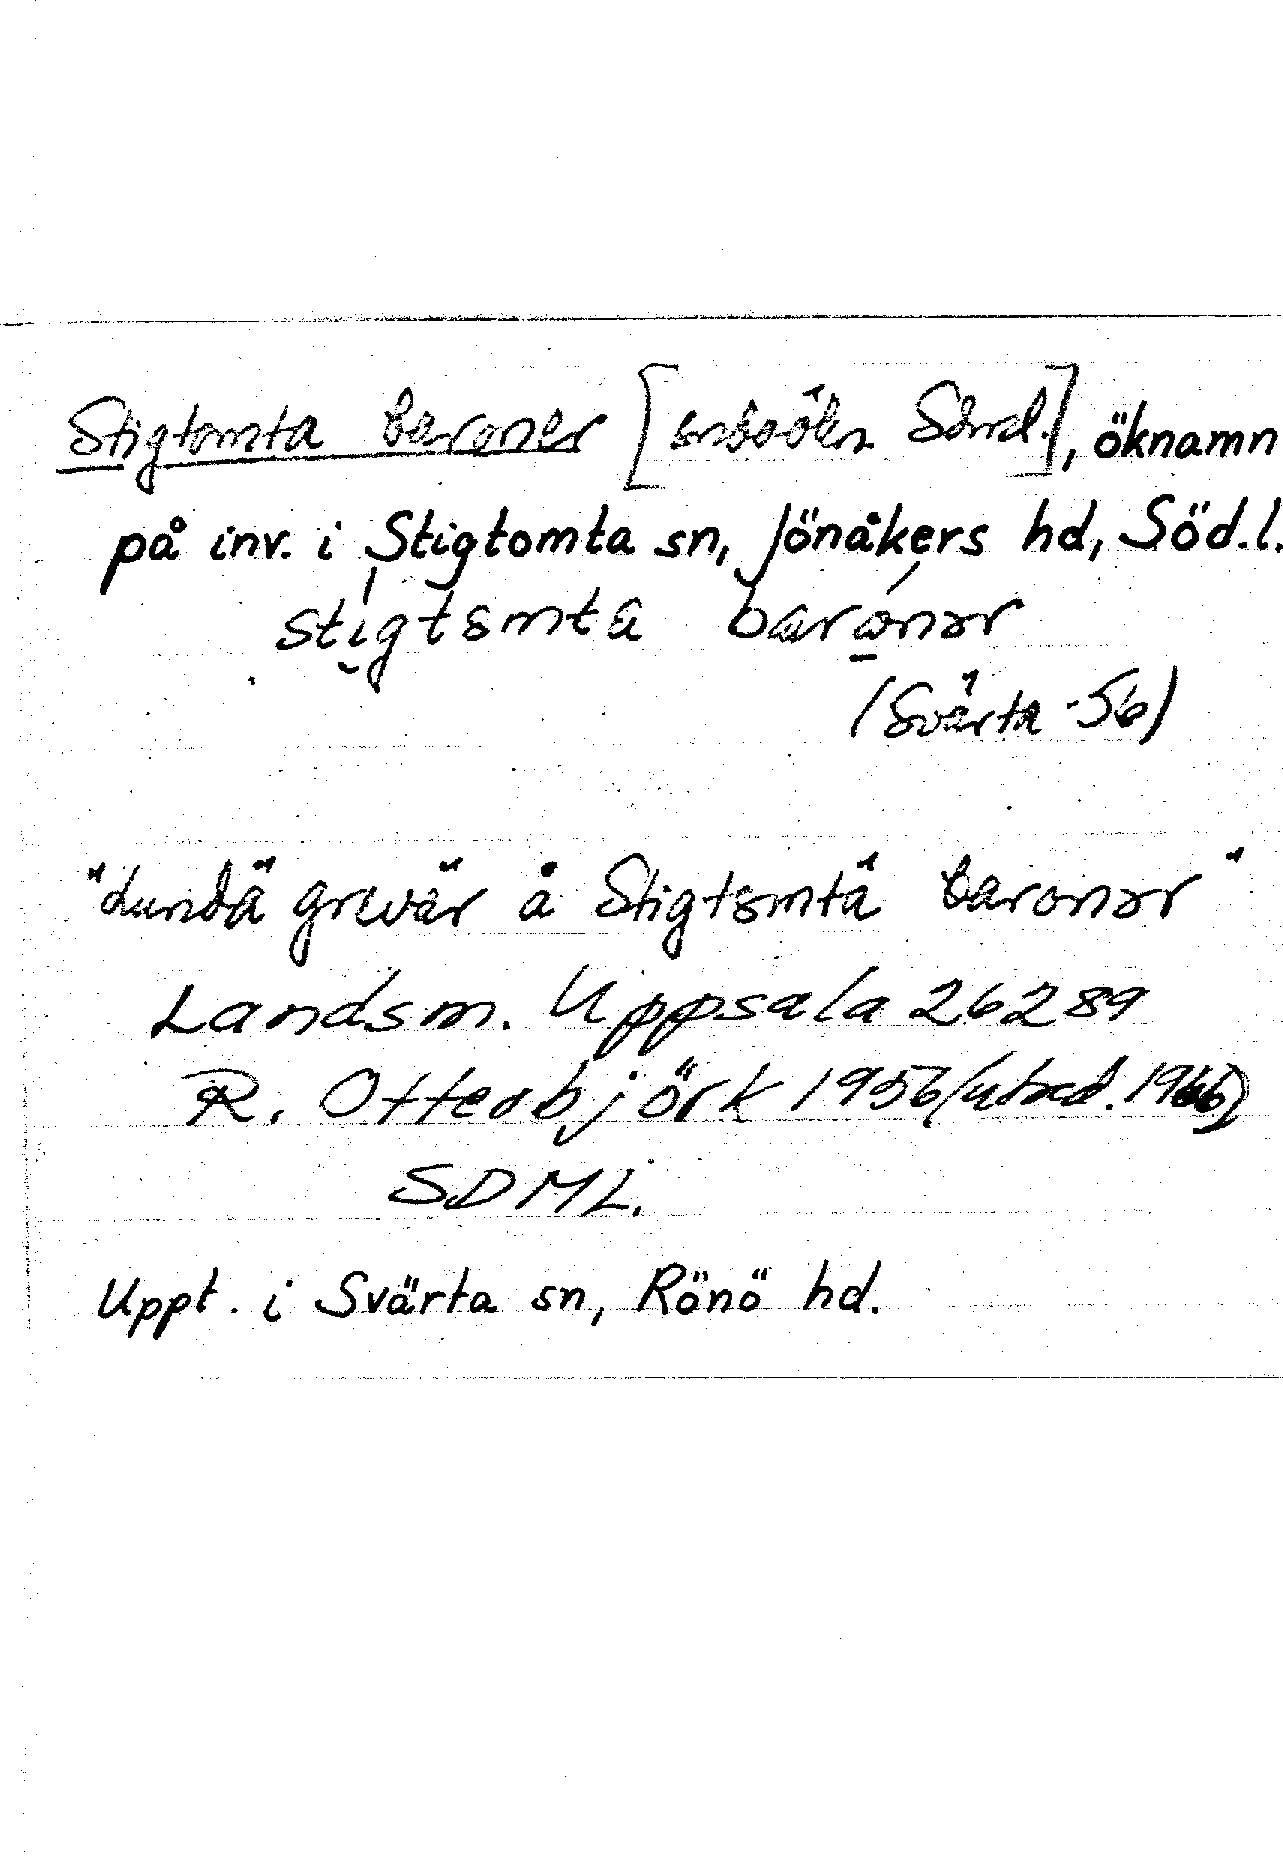 Stigtomta baroner [snboökn Sörml.], öknamn
på inv. i Stigtomta sn, Jönåkers hd, Söd.l.
stigtomta baronər
(Svärta -56)
"Lundä grevär å Stigtomtä baronər"
Landsm. Uppsala 26289
R. Otterbjörk 1956 (utred. 1966)
SDML.
Uppt. i Svärta sn, Rönö hd.